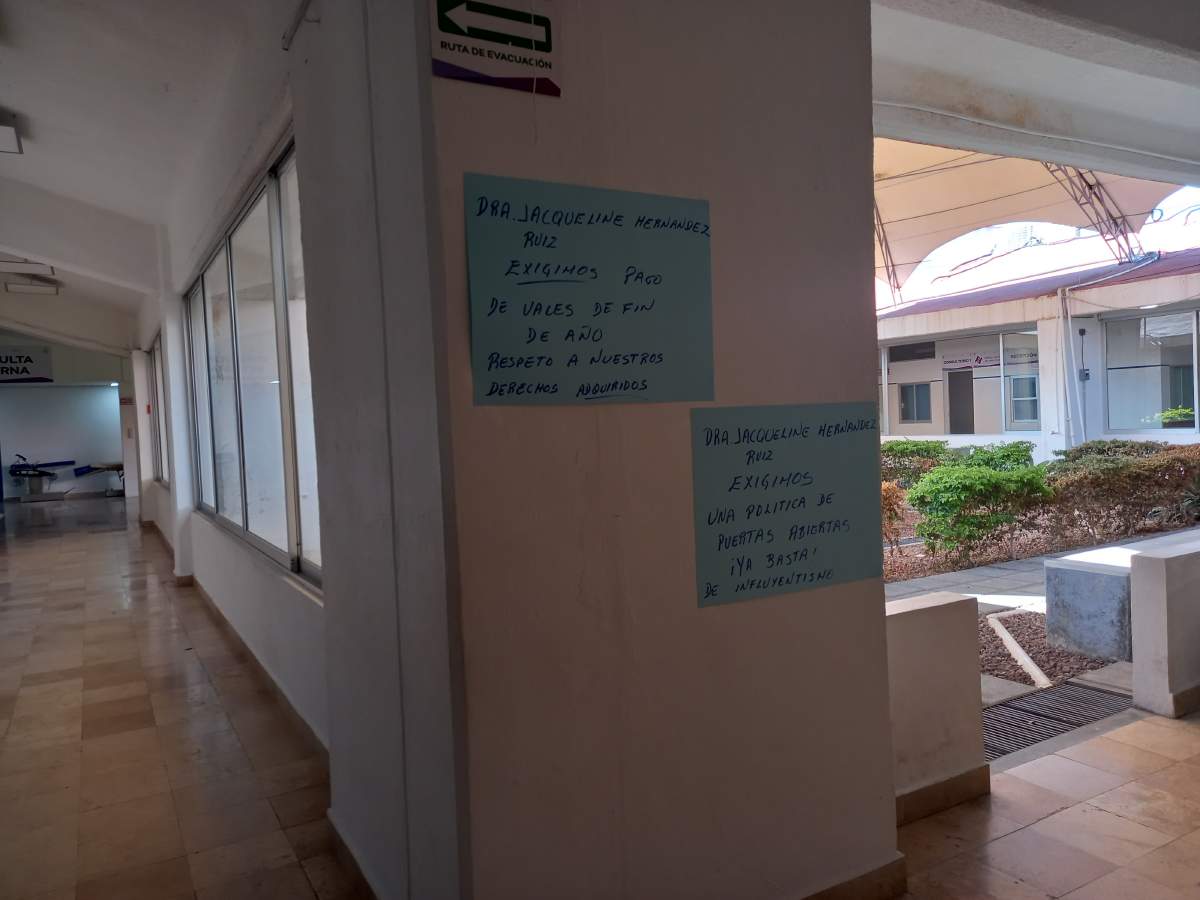 RUTA DE EVACUACIÓN
DRA. JACQUELINE HERNANDEZ
RUIZ
EXIGIMOS PAGO
DE VALES DE FIN
DE AÑO
RESPETO A NUESTROS
DERECHOS ADQUIRIDOS
DRA. JACQUELINE HERNANDEZ
RUIZ
EXIGIMOS
UNA POLITICA DE
PUERTAS ABIERTAS
¡YA BASTA!
DE INFLUYENTISMO
ULTA
RNA
CONSULTORIO 1